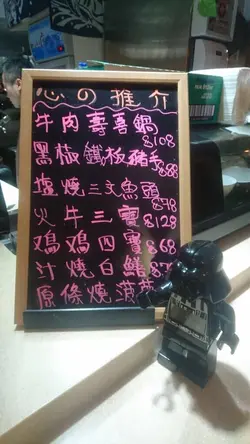 心の推介
牛肉壽喜鍋 $108
黑椒鐵板豬手 $88
塩燒三文魚頭 $78
火牛三寶 $128
鴻鴻四寶 $68
汁燒白鱔 $7
原條燒菠